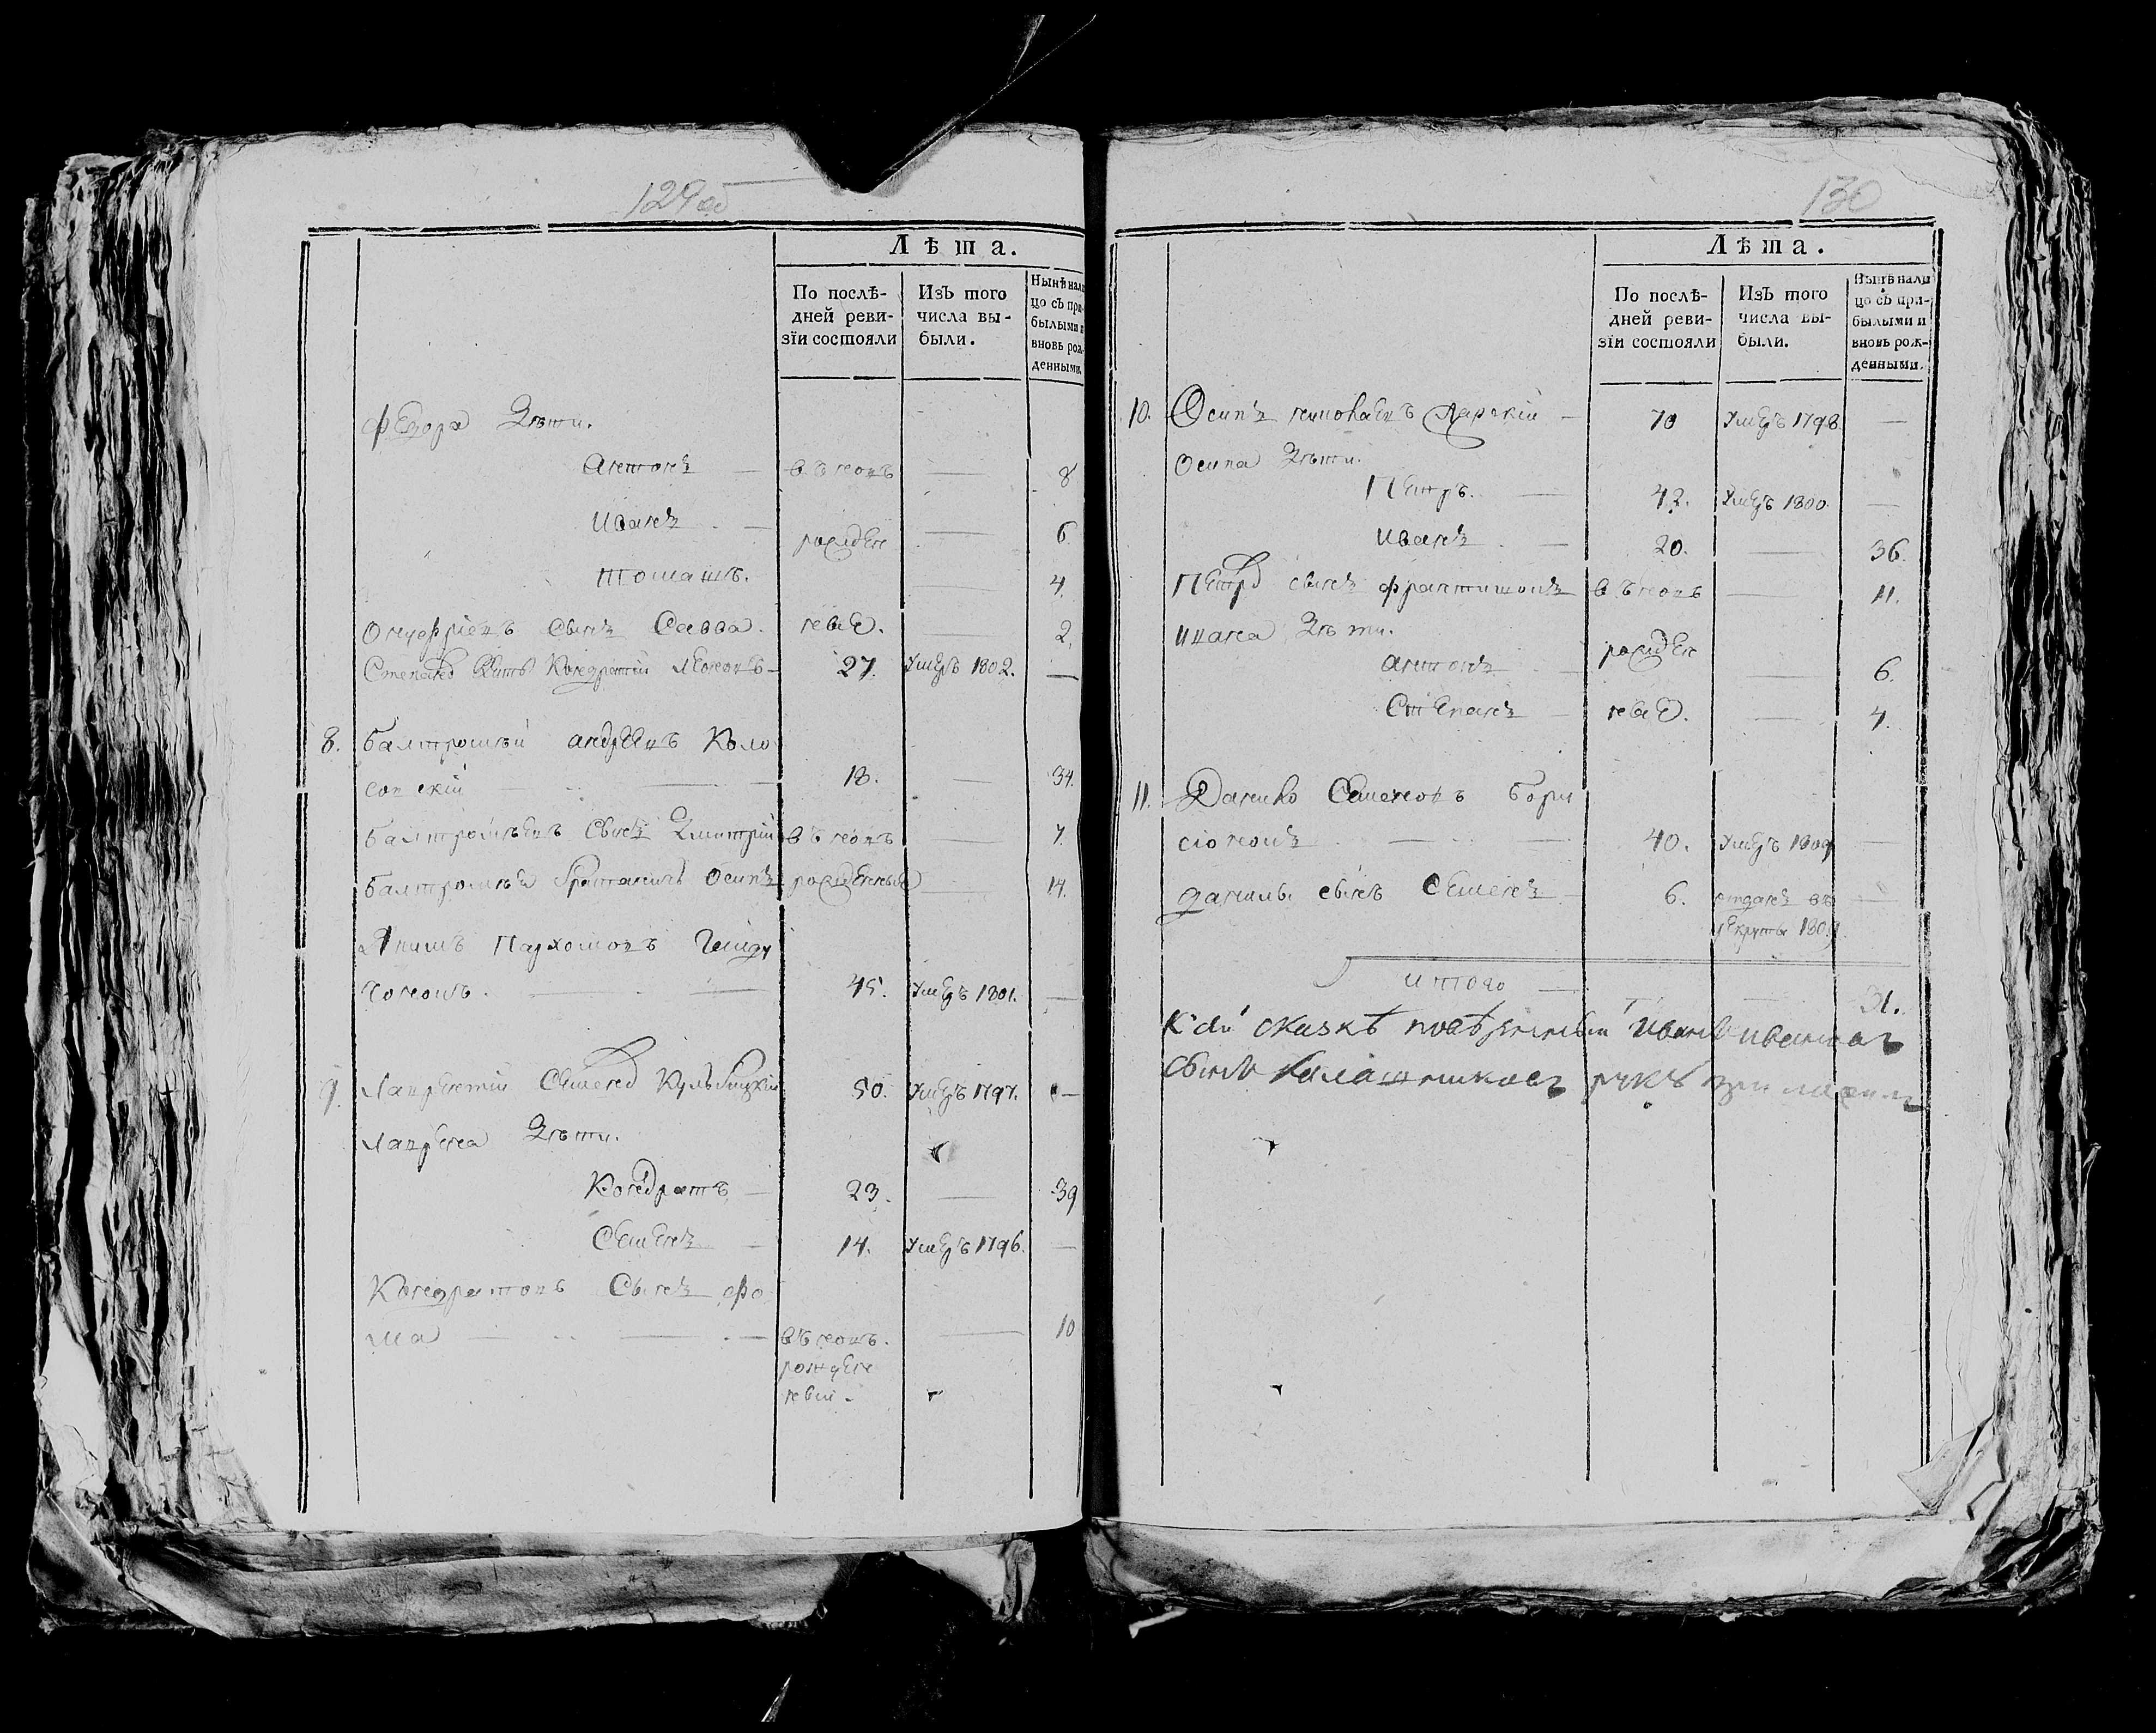 129 об
Лѣта.
По послѣ-
дней реви-
зїи состояли
Изъ того
числа вы-
были.
Нынѣ нали
цо съ при-
былыми и
вновь рож-
денными.
Федора Дѣти.
Антонъ — въ новъ — 8
Иванъ — рожден — 6
Томашъ. — 4.
Онуфріевъ Сынъ Савва. ныя. — 2.
Степана Зять Кондратій Леоновъ — 27. Умеръ 1802. —
8. Балтромѣй Андреевъ Коло
совскій — 18. — 34.
Балтромѣевъ Сынъ Дмитрій въ новъ — 7.
Балтромѣя братаничъ Осипъ рожденныя — 14.
Якимъ Пархомовъ
45. Умеръ 1801. —
9. Лаврентій Семенов 50. Умеръ 1797. —
Лаврена Дѣти.
Кондратъ — 23. — 39
Семенъ — 14. Умеръ 1796. —
Кондратовъ Сынъ Фо
ма — въ новъ. — 10
рожден
ный.
130
Лѣта.
По послѣ-
дней реви-
зїи состояли
Изъ того
числа вы-
были.
Нынѣ нали
цо съ при-
былыми и
вновь рож-
денными.
10. Осипъ — 70 Умеръ 1798. —
Осипа Дѣти.
Петръ. — 42. Умеръ 1800. —
Иванъ — 20. — 36.
Петра сынъ Франтишокъ въ новъ — 11.
Ивана Дѣти. рожден
Антонъ — 6.
Степанъ — ныя. — 4.
11. Данило Семеновъ Бори
сіонокъ — 40. Умеръ 1809 —
Данилы сынъ Семенъ — 6. отданъ въ —
рекруты 1809
Итого — 31.
К сей сказкѣ повѣренный Иванъ Ивановъ
Сынъ Калашниковъ руку приложилъ